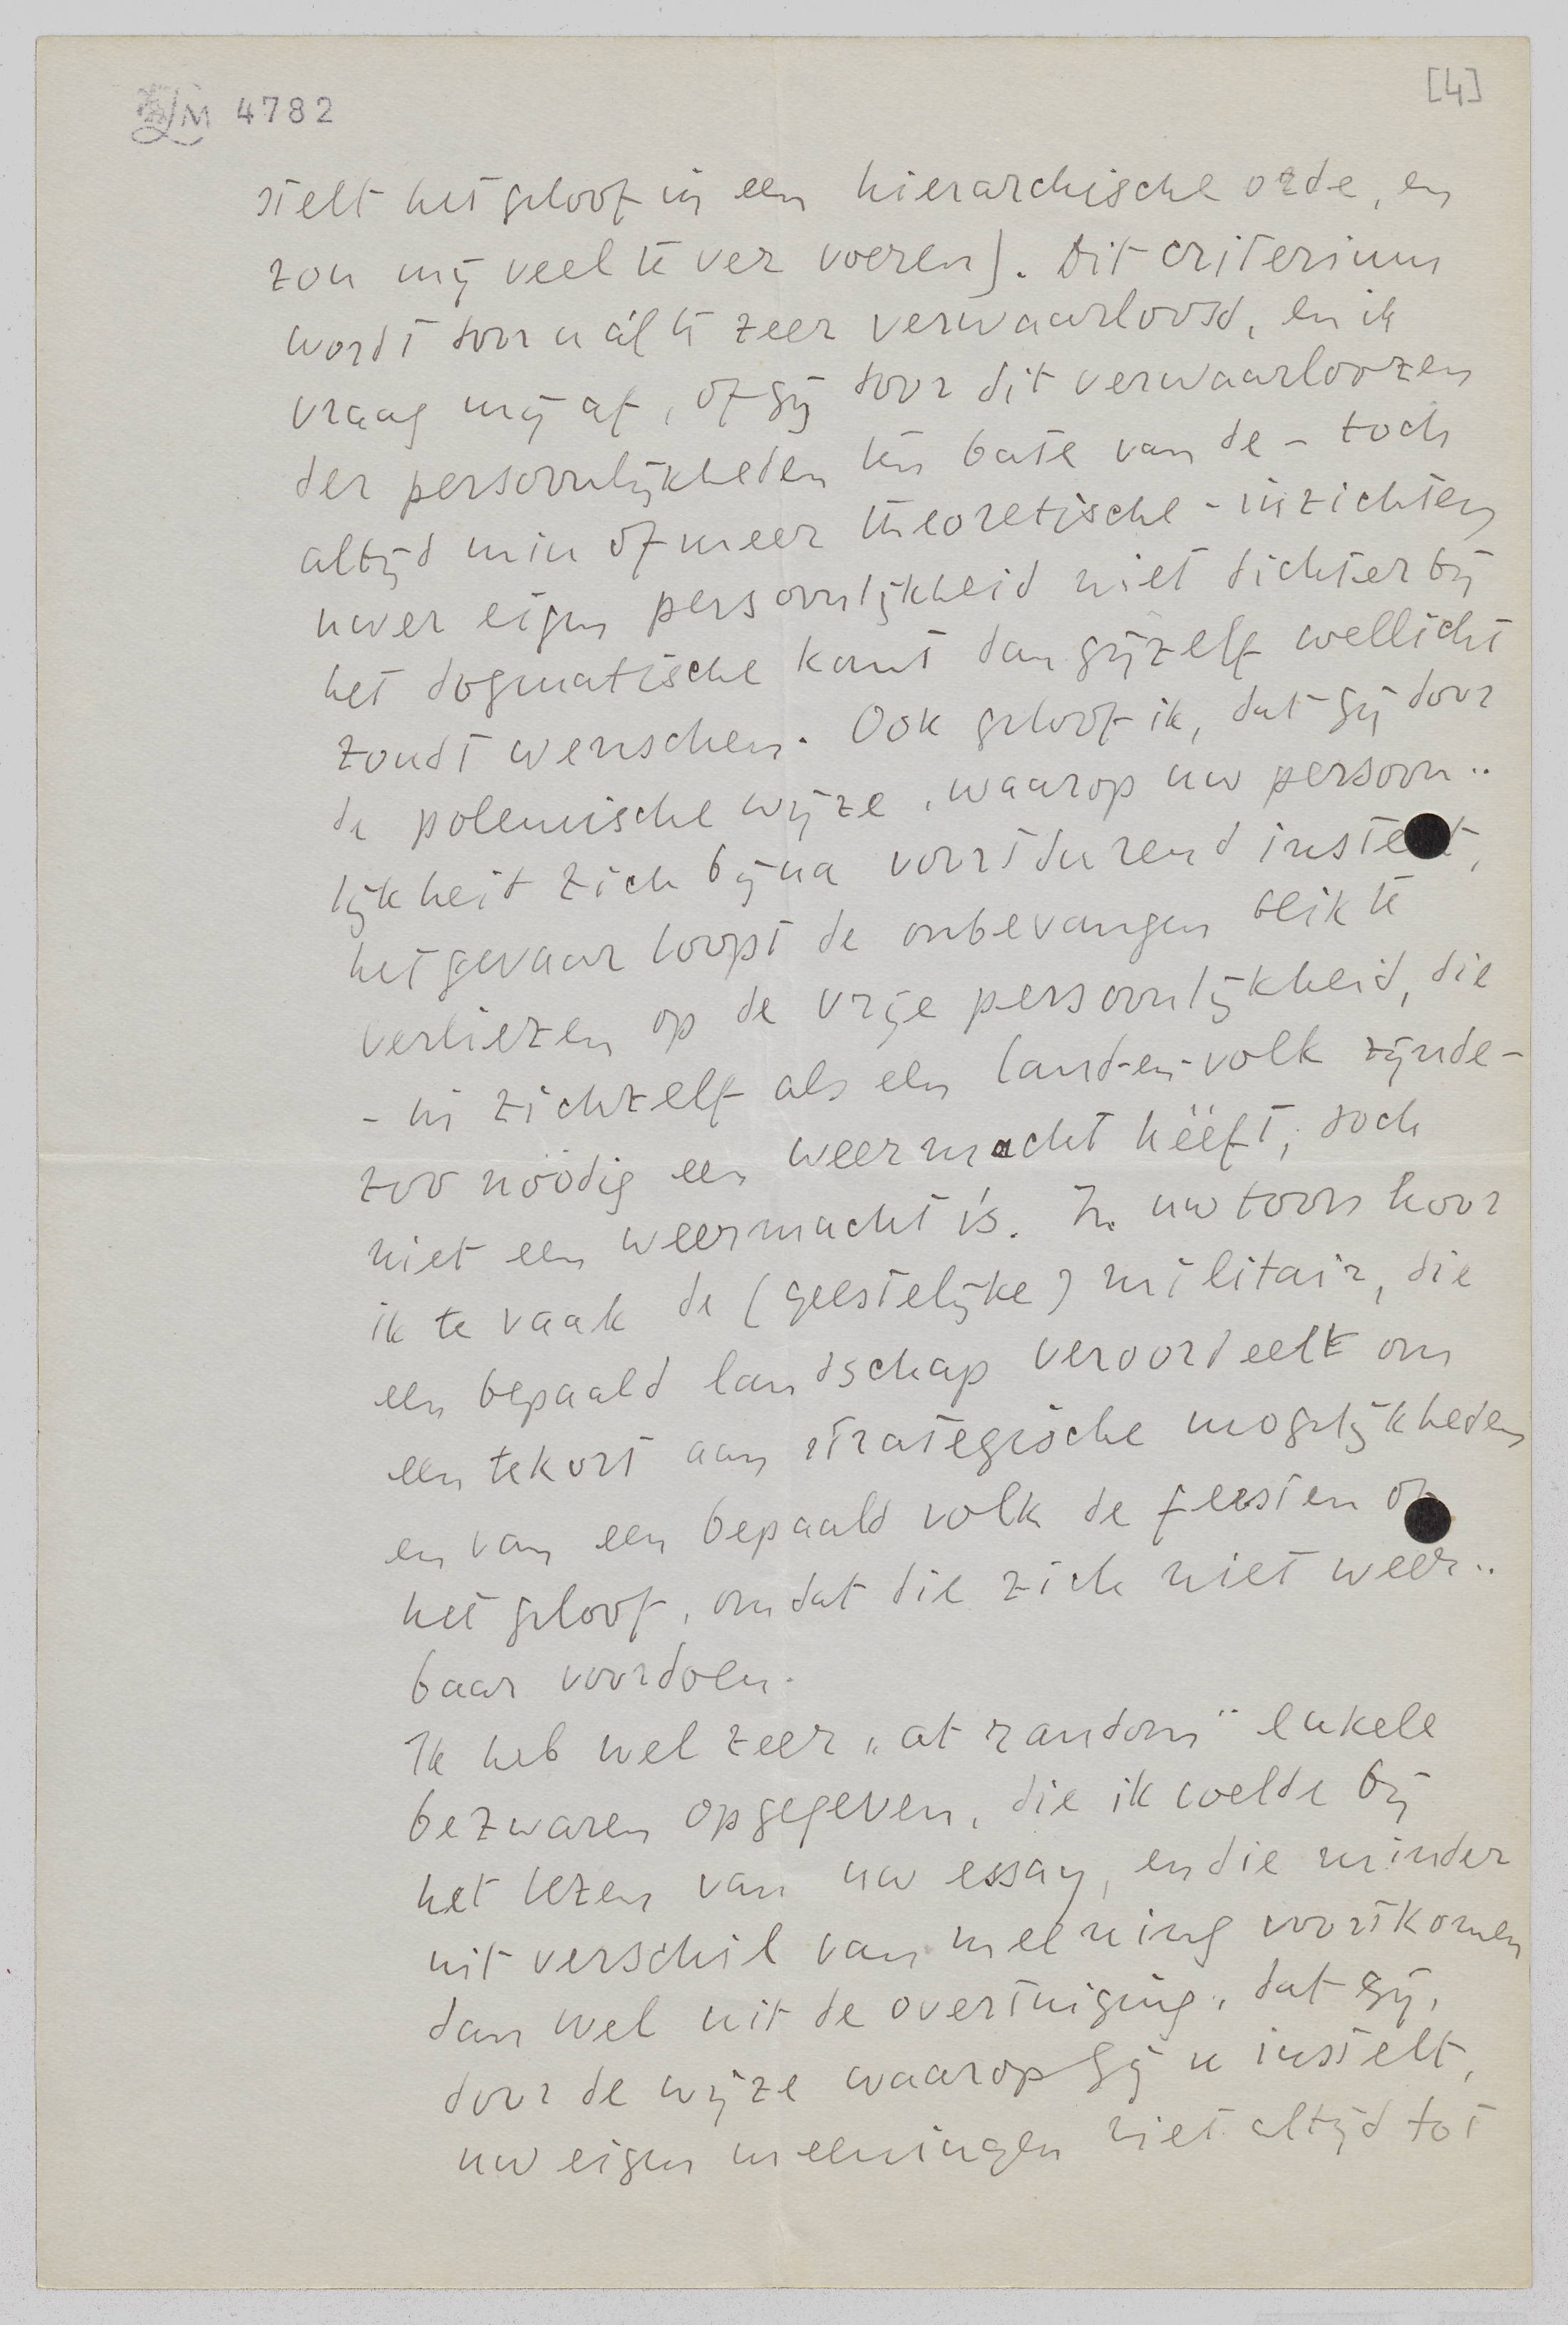 LM 4782
[4]
stelt het geloof in een hierarchische orde, en
zou mij veel te ver voeren). Dit criterium
wordt door u ál te zeer verwaarloosd, en ik
vraag mij af, of gij door dit verwaarloozen
der persoonlijkheden ten bate van de – toch
altijd min of meer theoretische – inzichten
uwer eigen persoonlijkheid niet dichter bij
het dogmatische komt dan gijzelf wellicht
zoudt wenschen. Ook geloof ik, dat gij door
de polemische wijze, waarop uw persoon..
lijkheit zich bijna voortdurend instelt,
het gevaar loopt de onbevangen blik te
verliezen op de vrije persoonlijkheid, die
– in zichzelf als een land-en-volk zijnde –
zoo nöödig een weermacht hëëft, doch
niet een weermacht ís. In uw toon hoor
ik te vaak de (geestelijke) militair, die
een bepaald landschap veroordeelt om
een tekort aan strategische mogelijkheden
en van een bepaald volk de feesten of
het geloof, omdat die zich niet weer..
baar voordoen.
Ik heb wel zeer „at random" enkele
bezwaren opgegeven, die ik voelde bij
het lezen van uw essay, en die minder
uit verschil van meening voortkomen
dan wel uit de overtuiging, dat gij,
door de wijze waarop gij u instelt,
uw eigen meeningen niet altijd tot